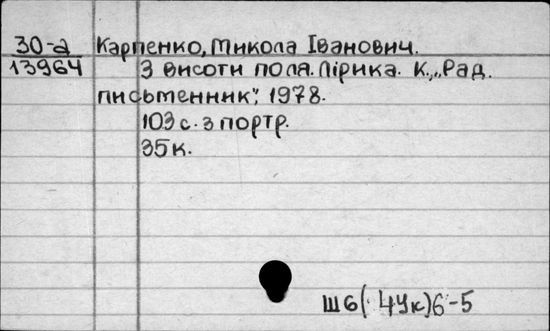 30-а Карпенко, Микола Іванович.
13964 З висоти поля. Лірика. К., „Рад.
письменник", 1978.
103 с. з портр.
35 к.
Ш6(4Ук)6-5